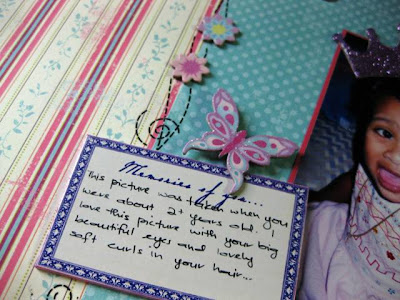 Memories of you...
This picture was taken when you
were about 2+ years old. I
love this picture with your big
beautiful eyes and lovely
soft curls in your hair...